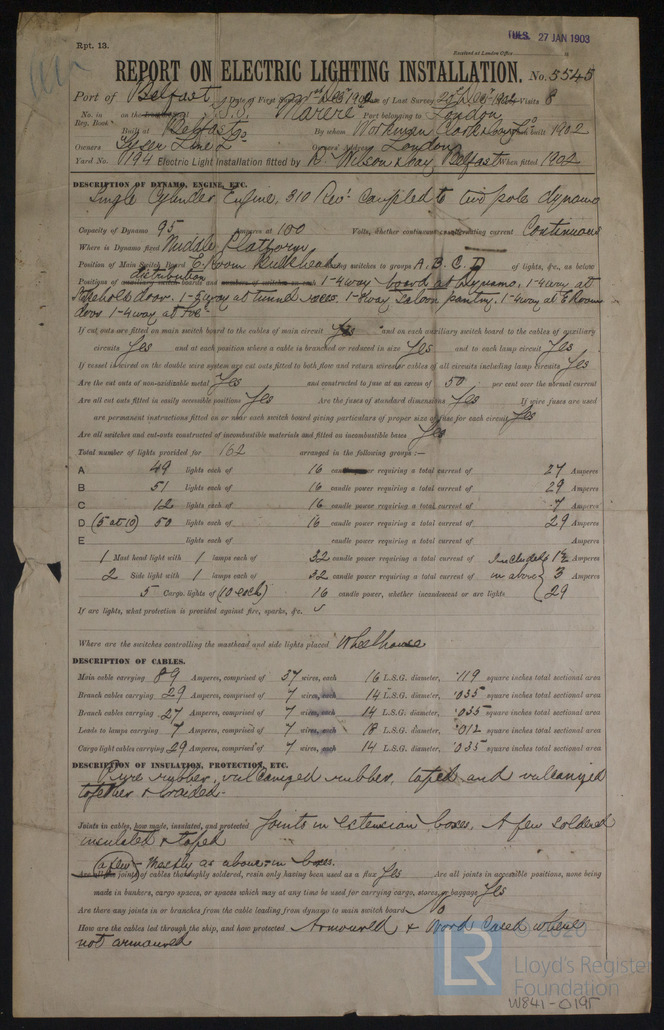 Rpt. 13.
TUES. 27 JAN 1903
Received at London Office
REPORT ON ELECTRIC LIGHTING INSTALLATION. No. 5545
Port of Belfast Date of First Survey Date of Last Survey Visits 8
No. in Reg. Book on the S.S. "Marere" Port belonging to London
Built at Belfast By whom Workman Clark & Co Ld When built 1902
Owners Tyser Line Ld Owners' Address London
Yard No. 194 Electric Light Installation fitted by Belfast When fitted 1902
DESCRIPTION OF DYNAMO, ENGINE, ETC.
Single Cylinder Engine, 310 Revs Coupled to two pole dynamo
Capacity of Dynamo 95 Amperes at 100 Volts, whether continuous or alternating current Continuous
Where is Dynamo fixed Middle Platform
Position of Main Switch Board E. Room Bulkhead having switches to groups A. B. C. D of lights, &c., as below
Positions of auxiliary distribution switch boards and numbers of switches on each 1-4way board at Dynamo, 1-4way at
Stokehold door. 1-5way at tunnel recess. 1-8way Saloon pantry. 1-4way at E Room
door 1-4way at
If cut outs are fitted on main switch board to the cables of main circuit Yes and on each auxiliary switch board to the cables of auxiliary
circuits Yes and at each position where a cable is branched or reduced in size Yes and to each lamp circuit Yes
If vessel is wired on the double wire system are cut outs fitted to both flow and return wires or cables of all circuits including lamp circuits Yes
Are the cut outs of non-oxidizable metal Yes and constructed to fuse at an excess of 50 per cent over the normal current
Are all cut outs fitted in easily accessible positions Yes Are the fuses of standard dimensions Yes If wire fuses are used
are permanent instructions fitted on or near each switch board giving particulars of proper size of fuse for each circuit Yes
Are all switches and cut-outs constructed of incombustible materials and fitted on incombustible bases Yes
Total number of lights provided for 162 arranged in the following groups :—
A 49 lights each of 16 candle power requiring a total current of 27 Amperes
B 51 lights each of 16 candle power requiring a total current of 29 Amperes
C 12 lights each of 16 candle power requiring a total current of 7 Amperes
D (5 at 10) 50 lights each of 16 candle power requiring a total current of 29 Amperes
E lights each of candle power requiring a total current of Amperes
1 Mast head light with 1 lamps each of 32 candle power requiring a total current of Included 1½ Amperes
2 Side light with 1 lamps each of 32 candle power requiring a total current of in above 3 Amperes
5 Cargo lights of (10 each) 16 candle power, whether incandescent or arc lights 29
If arc lights, what protection is provided against fire, sparks, &c.
Where are the switches controlling the masthead and side lights placed Wheelhouse
DESCRIPTION OF CABLES.
Main cable carrying 89 Amperes, comprised of 37 wires, each 16 L.S.G. diameter, .119 square inches total sectional area
Branch cables carrying 29 Amperes, comprised of 7 wires, each 14 L.S.G. diameter, .035 square inches total sectional area
Branch cables carrying 27 Amperes, comprised of 7 wires, each 14 L.S.G. diameter, .035 square inches total sectional area
Leads to lamps carrying 7 Amperes, comprised of 7 wires, each 18 L.S.G. diameter, .012 square inches total sectional area
Cargo light cables carrying 29 Amperes, comprised of 7 wires, each 14 L.S.G. diameter, .035 square inches total sectional area
DESCRIPTION OF INSULATION, PROTECTION, ETC.
Pure rubber, vulcanized rubber, taped and vulcanized
together & braided.
Joints in cables, how made, insulated, and protected Joints in extension boxes. A few soldered
insulated & taped
(a few) - Mostly as above - in boxes.
Are all the joints of cables thoroughly soldered, resin only having been used as a flux Yes Are all joints in accessible positions, none being
made in bunkers, cargo spaces, or spaces which may at any time be used for carrying cargo, stores, or baggage Yes
Are there any joints in or branches from the cable leading from dynamo to main switch board No
How are the cables led through the ship, and how protected Armoured & Wood Cased where
not armoured
© 2020
LR
Lloyd's Register
Foundation
W841-0195